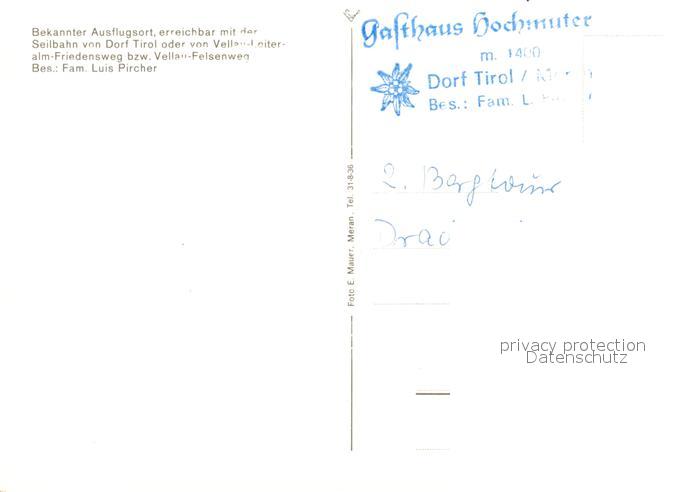 Bekannter Ausflugsort, erreichbar mit der
Seilbahn von Dorf Tirol oder von Vellau-Leiter-
alm-Friedensweg bzw. Vellau-Felsenweg
Bes.: Fam. Luis Pircher
Foto E. Mauer, Meran, Tel. 31-8-36
Gasthaus Hochmuter
m. 1400
Dorf Tirol /
Bes.: Fam. L.
2. Bergtour
privacy protection
Datenschutz